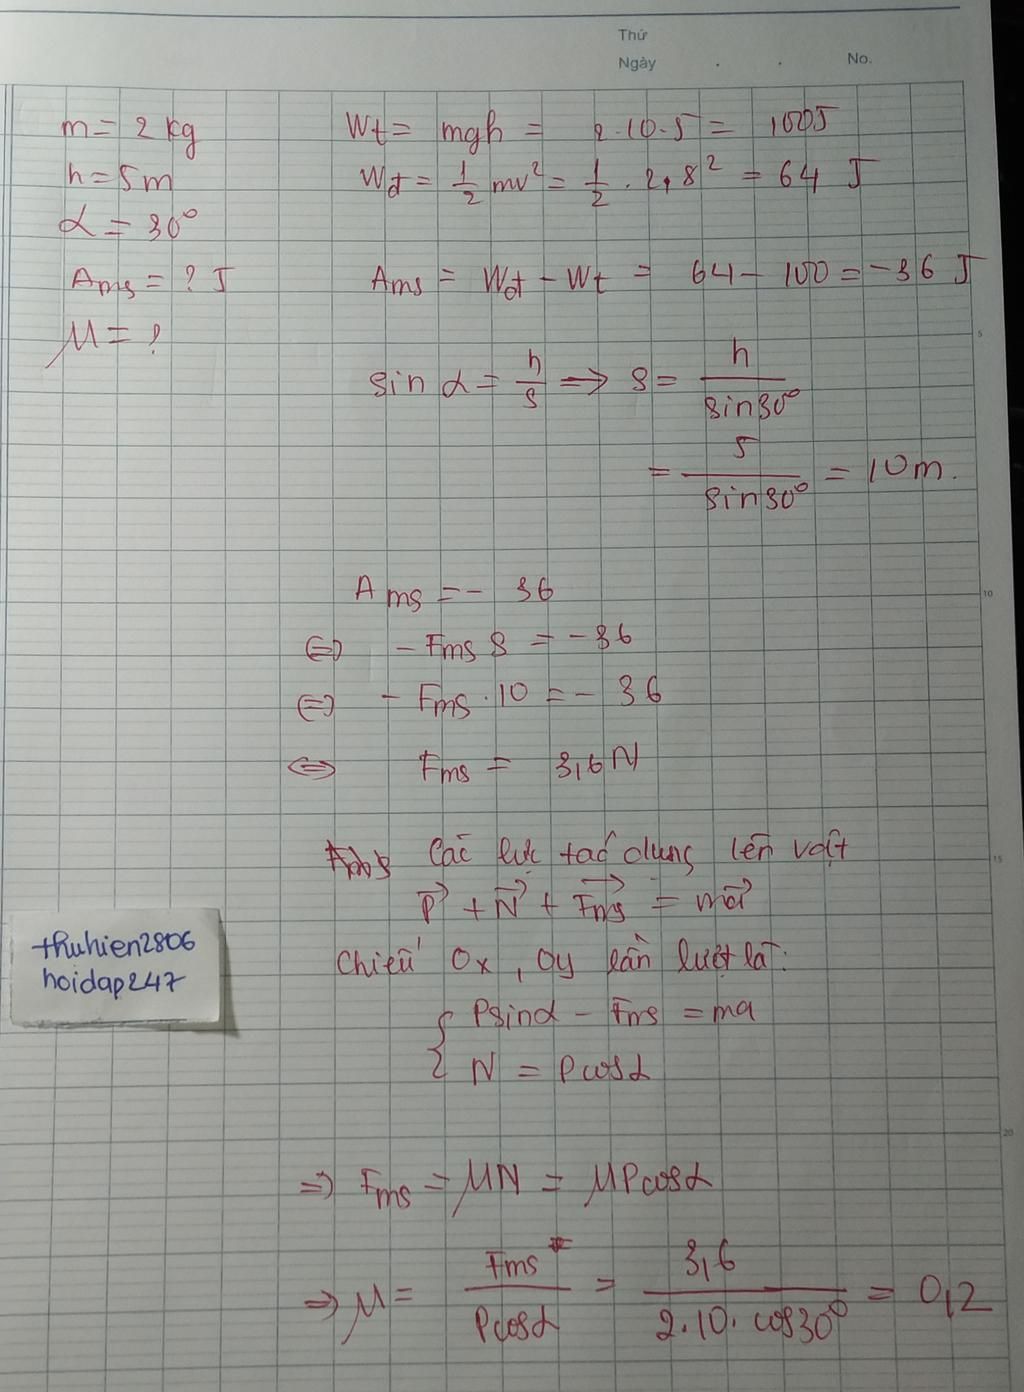 Thứ
Ngày . . No.
m = 2 kg
h = 5m
α = 30°
Ams = ? J
μ = ?
Wt = mgh = 2.10.5 = 100J
Wđ = 1/2 mv² = 1/2 . 2,8² = 64 J
Ams = Wđ - Wt = 64 - 100 = -36 J
sin α = h/s => s = h/sin30°
= 5/sin30° = 10m.
5
Ams = - 36
<=> - Fms s = - 36
<=> - Fms . 10 = - 36
<=> Fms = 3,6 N
10
Các lực tác dụng lên vật
P⃗ + N⃗ + Fms⃗ = ma⃗
Chiếu Ox, Oy lần lượt là:
{ Psinα - Fms = ma
N = Pcosα
15
thuhien2806
hoidap247
=> Fms = μN = μPcosα
=> μ = Fms/Pcosα = 3,6/2.10.cos30° = 0,2
20